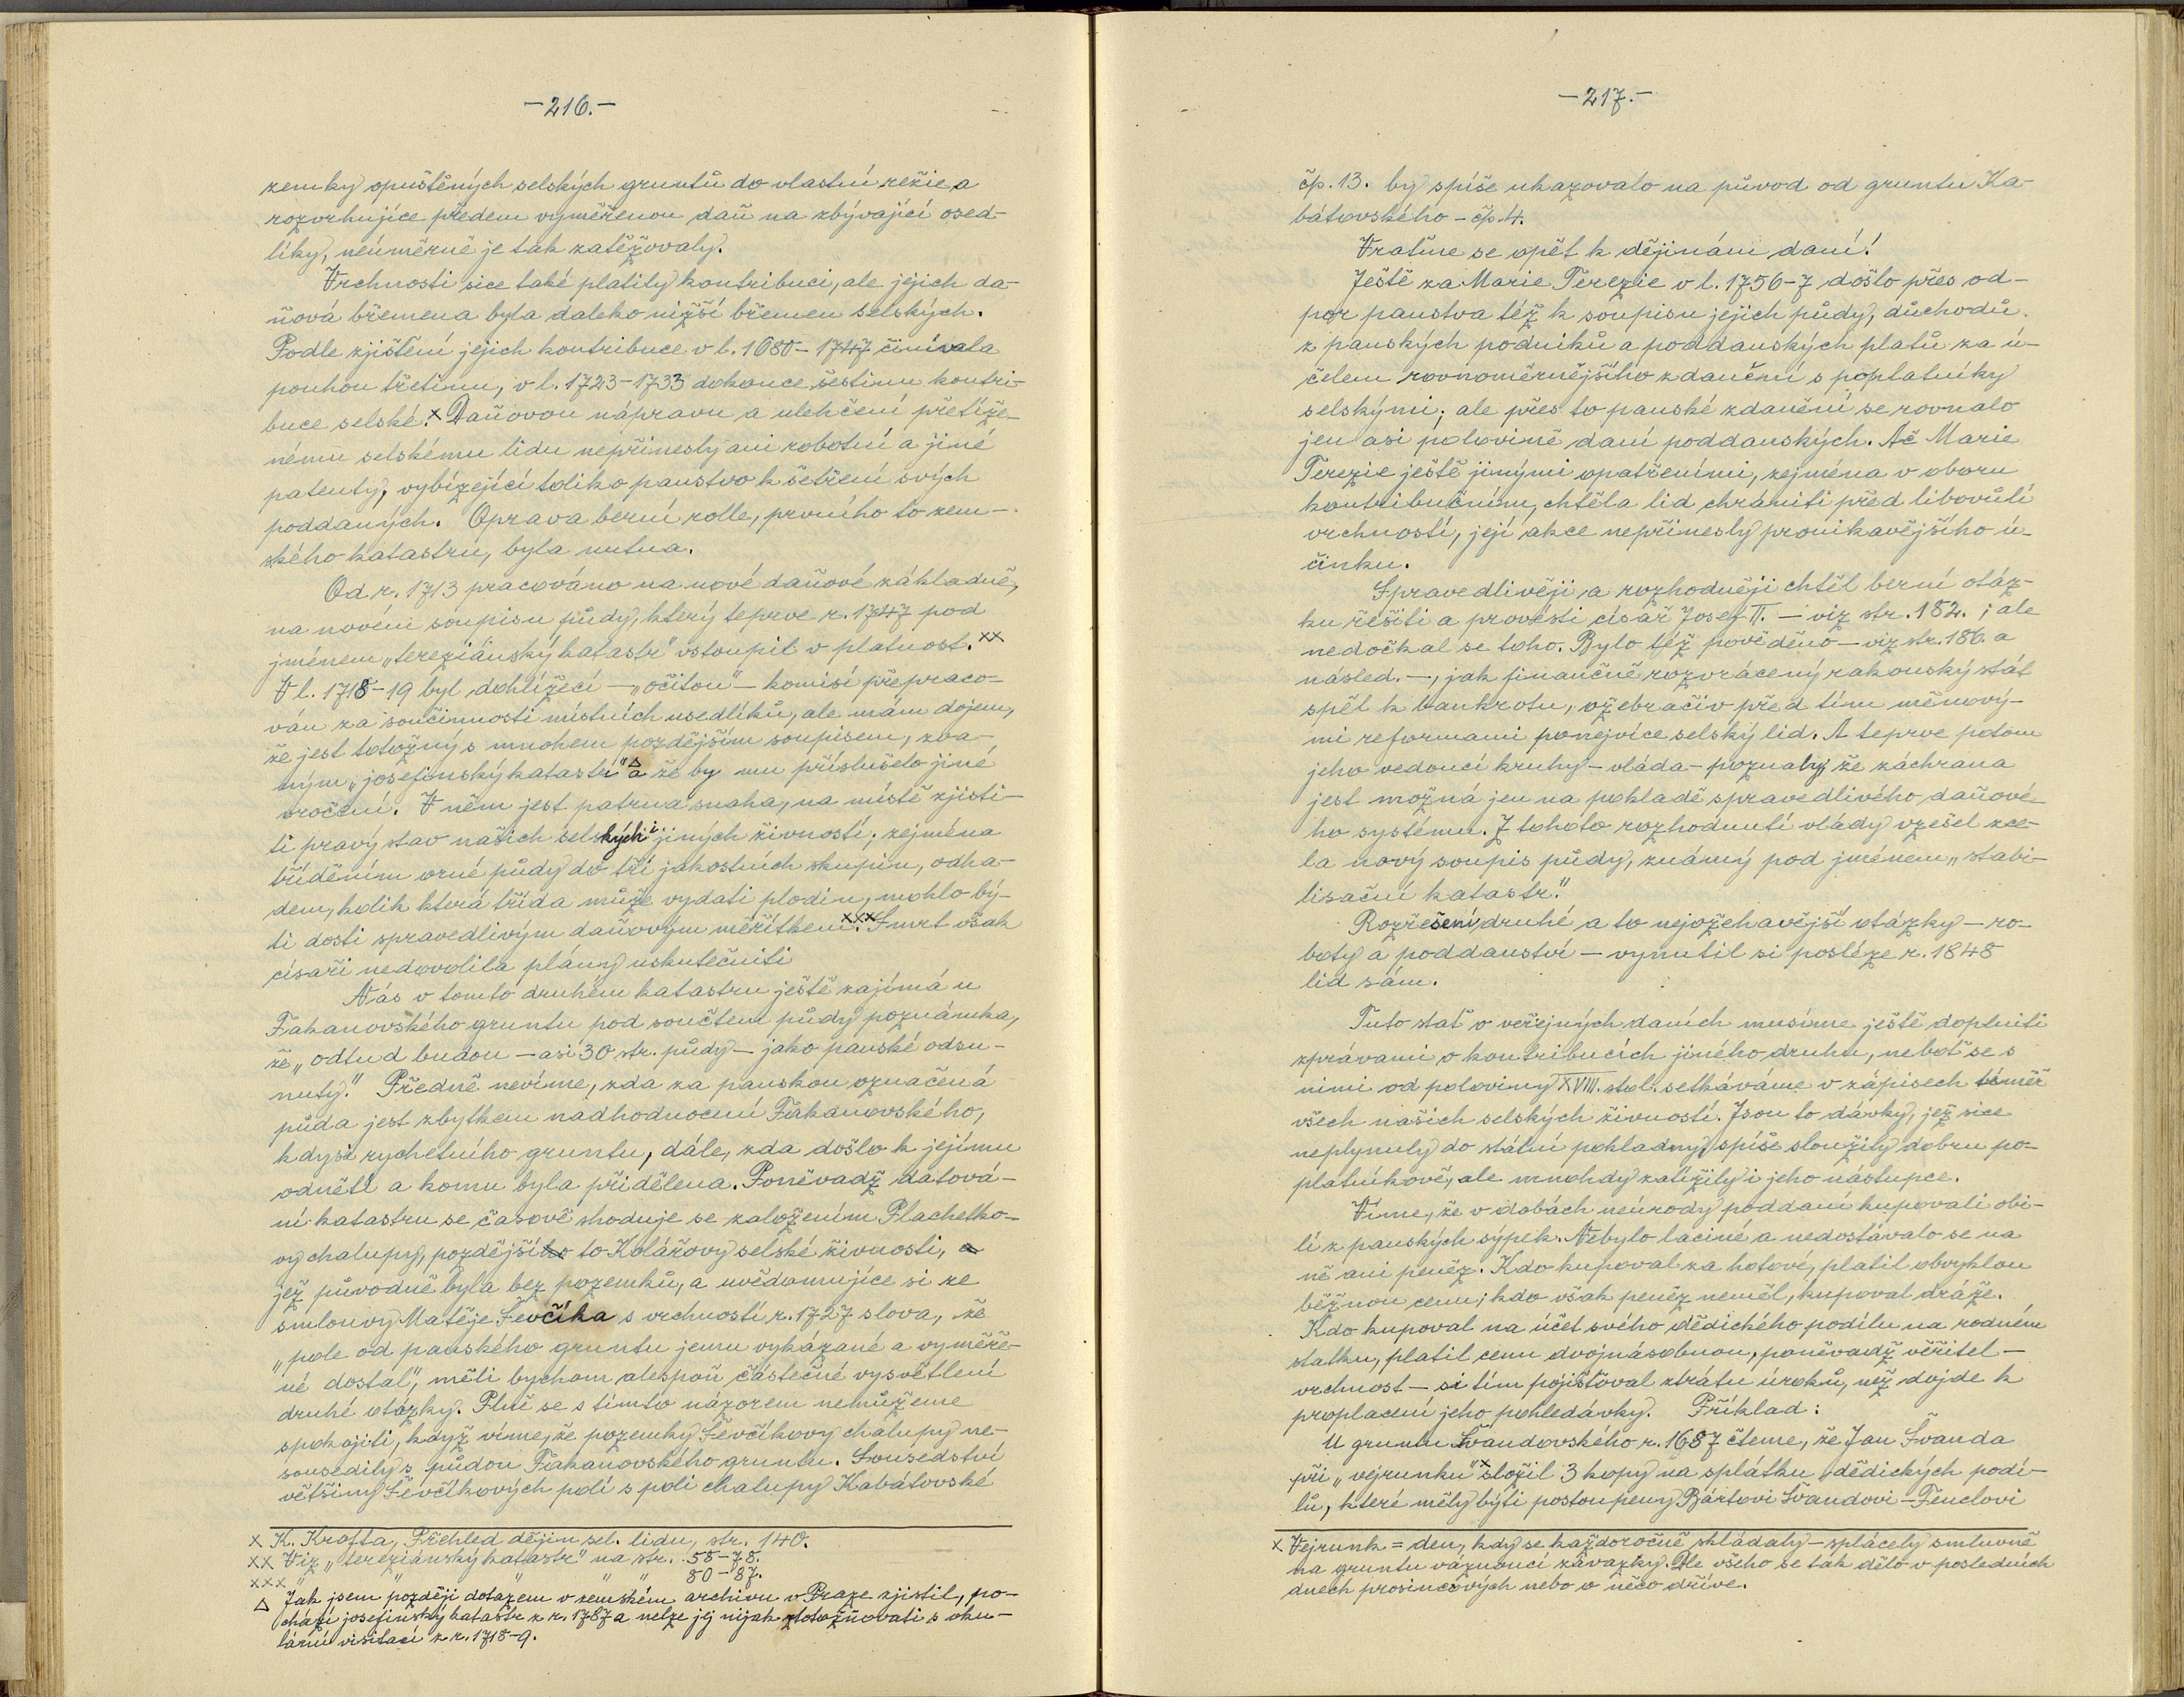 —216.—
zemky opuštěných selských gruntů do vlastní režie a
rozvrhujíce předem vyměřenou daň na zbývající osed-
líky, neúměrně je tak zatěžovaly.
Vrchnosti sice také platily kontribuci, ale jejich da-
ňová břemena byla daleko nižší břemen selských.
Podle zjištění jejich kontribuce v l. 1680–1747 činívala
pouhou třetinu, v l. 1723–1733 dokonce šestinu kontri-
buce selské.x Daňovou nápravu a ulehčení přetíže-
nému selskému lidu nepřinesly ani robotní a jiné
patenty, vybízející toliko panstvo k šetření svých
poddaných. Oprava berní rolle, prvního to zem-
ského katastru, byla nutna.
Od r. 1713 pracováno na nové daňové základně,
na novém soupisu půdy, který teprve r. 1747 pod
jménem „tereziánský katastr" vstoupil v platnost.xx
V l. 1718–19 byl dohlížecí — „očitou" — komisí přepraco-
ván za součinnosti místních usedlíků, ale mám dojem,
že jest totožný s mnohem pozdějším soupisem, zva-
ným „josefinský katastr"△ a že by mu příslušelo jiné
vročení. V něm jest patrna snaha, na místě zjisti-
ti pravý stav našich selských i jiných živností; zejména
tříděním orné půdy do tří jakostních skupin, odha-
dem, kolik která třída může vydati plodin, mohlo bý-
ti dosti spravedlivým daňovým měřítkem.xxx Smrt však
císaři nedovolila plány uskutečniti
Nás v tomto druhém katastru ještě zajímá u
Fakanovského gruntu pod součtem půdy poznámka,
že „odtud budou — asi 30 str. půdy — jako panské odsu-
nuty." Předně nevíme, zda za panskou označená
půda jest zbytkem nadhodnocení Fakanovského,
kdysi rychetního gruntu, dále, zda došlo k jejímu
odnětí a komu byla přidělena. Poněvadž datová-
ní katastru se časově shoduje se založením Plachetko-
vy chalupy, pozdější to Kolářovy selské živnosti,
jež původně byla bez pozemků, a uvědomujíce si ze
smlouvy Matěje Ševčíka s vrchností r. 1727 slova, že
„pole od panského gruntu jemu vykázané a vyměře-
né dostal", měli bychom alespoň částečné vysvětlení
druhé otázky. Plně se s tímto názorem nemůžeme
spokojiti, když víme, že pozemky Ševčíkovy chalupy ne-
sousedily s půdou Fakanovského gruntu. Sousedství
většiny Ševčíkových polí s poli chalupy Kabátovské
x K. Krofta, Přehled dějin sel. lidu, str. 140.
xx Viz „tereziánský katastr" na str. 58–78.
xxx " " " " " 80–87.
△ Jak jsem později dotazem v zemském archivu v Praze zjistil, po-
chází josefinský katastr z r. 1787 a nelze jej nijak ztotožňovati s oku-
lární visitací z r. 1718–9.
—217.—
čp. 13. by spíše ukazovalo na původ od gruntu Ka-
bátovského – čp. 4.
Vraťme se opět k dějinám daní!
Ještě za Marie Terezie v l. 1756–7 došlo přes od-
por panstva též k soupisu jejich půdy, důchodů
z panských podniků a poddanských platů za ú-
čelem rovnoměrnějšího zdanění s poplatníky
selskými; ale přes to panské zdanění se rovnalo
jen asi polovině daní poddanských. Ač Marie
Terezie ještě jinými opatřeními, zejména v oboru
kontribučním, chtěla lid chrániti před libovůlí
vrchností, její akce nepřinesly pronikavějšího ú-
činku.
Spravedlivěji a rozhodněji chtěl berní otáz-
ku řešiti a provésti císař Josef II. — viz str. 182. ; ale
nedočkal se toho. Bylo též pověděno — viz str. 186. a
násled. —, jak finančně rozvrácený rakouský stát
spěl k bankrotu, ožebračiv před tím měnový-
mi reformami ponejvíce selský lid. A teprve potom
jeho vedoucí kruhy – vláda – poznaly, že záchrana
jest možná jen na pokladě spravedlivého daňové-
ho systému. Z tohoto rozhodnutí vlády vzešel zce-
la nový soupis půdy, známý pod jménem „stabi-
lisační katastr."
Rozřešení druhé a to nejožehavější otázky — ro-
boty a poddanství — vynutil si posléze r. 1848
lid sám.
Tuto stať o veřejných daních musíme ještě doplniti
zprávami o kontribucích jiného druhu, neboť se s
nimi od poloviny XVIII. stol. setkáváme v zápisech téměř
všech našich selských živností. Jsou to dávky, jež sice
neplynuly do státní pokladny, spíše sloužily dobru po-
platníkově, ale mnohdy zatížily i jeho nástupce.
Víme, že v dobách neúrody poddaní kupovali obi-
lí z panských sýpek. Nebylo laciné a nedostávalo se na
ně ani peněz. Kdo kupoval za hotové, platil obvyklou
běžnou cenu; kdo však peněz neměl, kupoval dráže.
Kdo kupoval na účet svého dědického podílu na rodném
statku, platil cenu dvojnásobnou, poněvadž věřitel –
vrchnost – si tím pojišťoval ztrátu úroků, než dojde k
proplacení jeho pohledávky. Příklad:
U gruntu Švandovského r. 1687 čteme, že Jan Švanda
při „vejrunku"x složil 3 kopy na splátku dědických podí-
lů, které měly býti postoupeny Bártovi Švandovi – Fenclovi
x Vejrunk = den, kdy se každoročně skládaly – splácely smluvně
na gruntu váznoucí závazky. Dle všeho se tak dělo v posledních
dnech prosincových nebo o něco dříve.